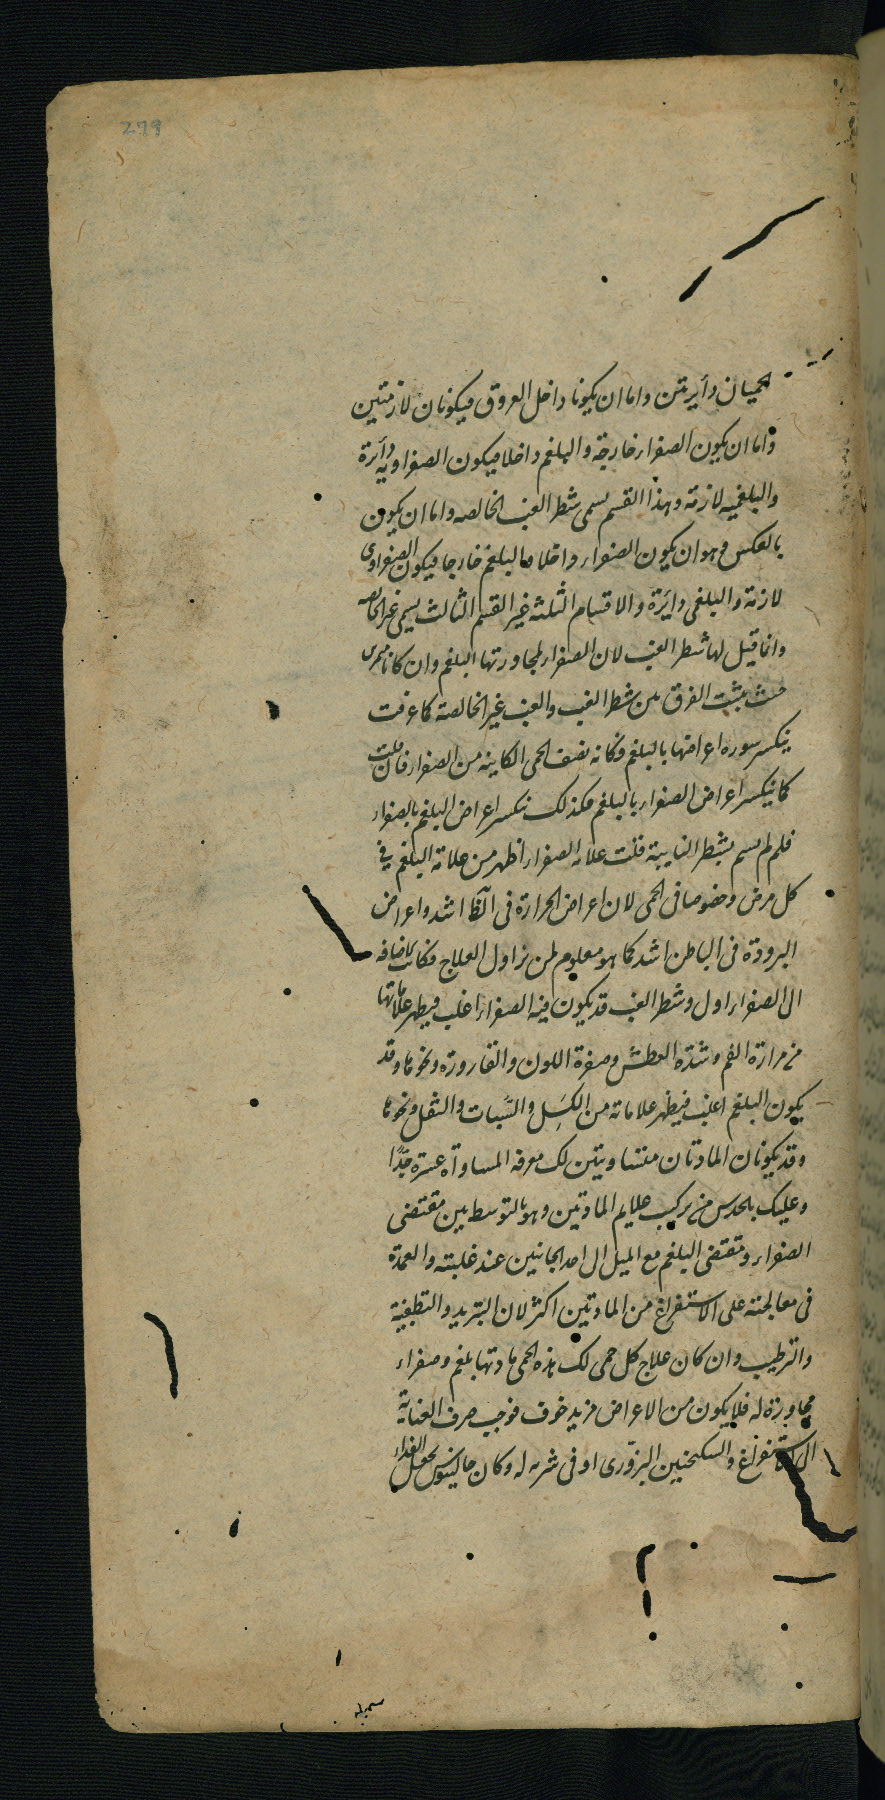 279
الحميان دأيرتين واما ان يكونا داخل العروق فيكونان لازمتين
واما ان يكون الصفراء خارجة والبلغم داخلا فيكون الصفراويه دأئرة
والبلغميه لازمة وهذا القسم يسمى شطر الغب الخالصه واما ان يكون
بالعكس وهو ان يكون الصفراء داخلا والبلغم خارجا فيكون الصفراوى
لازمة والبلغمى دائرة والاقسام الثلثه غير القسم الثالث يسمى غير الخالصه
وانما قيل لها شطر الغب لان الصفراء لمجاورتها البلغم وان كانا
يثبت الفرق بين شطر الغب والغب غير الخالصة كما عرفت
ينكسر سورة اعراضها بالبلغم فكانه نصف الحمى الكاينه من الصفراء فان قلت
كما ينكسر اعراض الصفراء بالبلغم فكذلك ينكسر اعراض البلغم بالصفراء
فلم لم يسم بشطر النايبة قلت علامة الصفراء اظهر من علامة البلغم فى
كل مرض وخصوصا فى الحمى لان اعراض الحرارة فى اشد واعراض
البرودة فى الباطن اشد كما هو معلوم لمن زاول العلاج فكانت الاضافه
الى الصفراء اولى وشطر الغب قد يكون فيه الصفراء اغلب فيظهر علاماتها
من مرارة الفم وشدة العطش وصفرة اللون والقارورة ونحوها وقد
يكون البلغم اغلب فيظهر علاماته من الكسل والسبات والثقل ونحوها
وقد يكونان المادتان متساويتين لك معرفه المساواة عسرة جدا
وعليك بالحدس من تركيب علايم المادتين وهو بالتوسط بين مقتضى
الصفراء ومقتضى البلغم مع الميل الى احد الجانبين عند غلبته والعمدة
فى معالجته على الاستفراغ من المادتين اكثر لان التبريد والتطفية
والترطيب وان كان علاج كل حمى لك هذه الحمى مادتها بلغم وصفراء
مجاورة له فلا يكون من الاعراض مزيد خوف فوجب صرف العناية
الى الاستفراغ والسكنجبين البزورى اوفى شربه له وكان جالينوس يجعل الغذاء